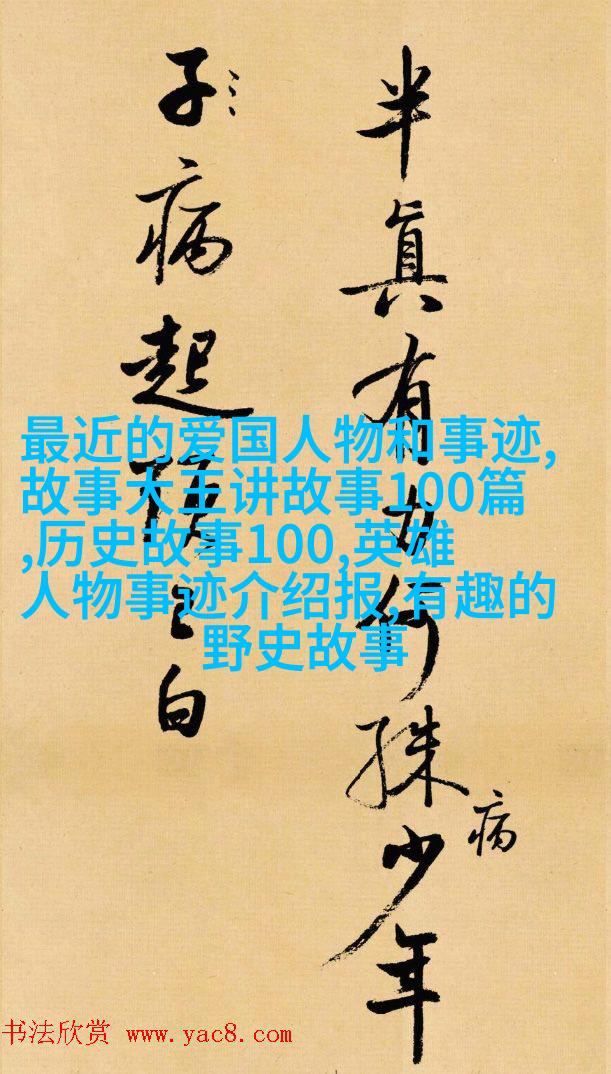 半真有力何殊少年
病
子病起之白
最近的爱国人物和事迹,
故事大王讲故事100篇
,历史故事100,英雄
人物事迹介绍报,有趣的
野史故事
书法欣赏 www.yac8.com